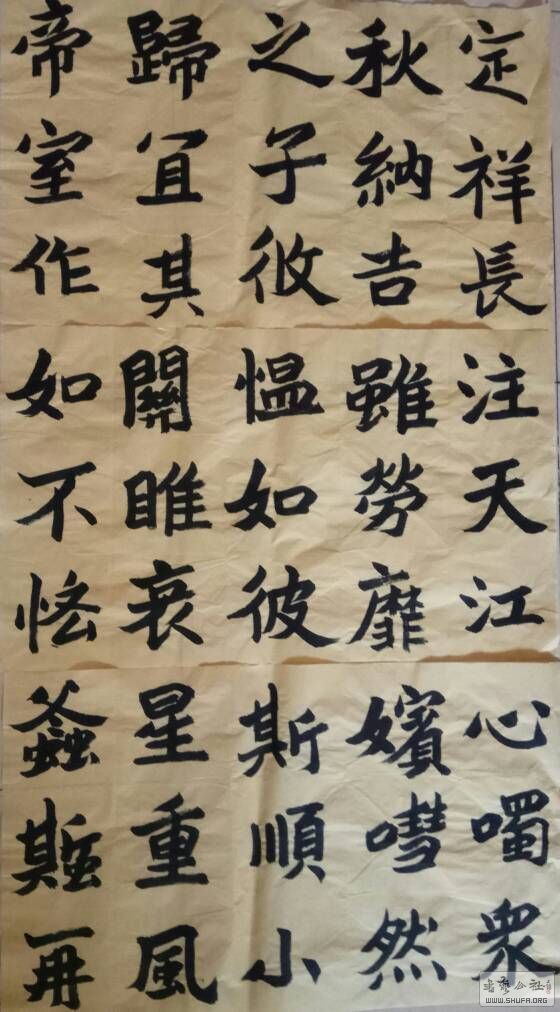 定祥長注天江心噣衆
秋納吉雖勞靡嬪嘒然
之子攸愠如彼斯順小
歸宜其關睢衰星重風
帝室作如不恡螽蟴再
書法公社
WWW.SHUFA.ORG